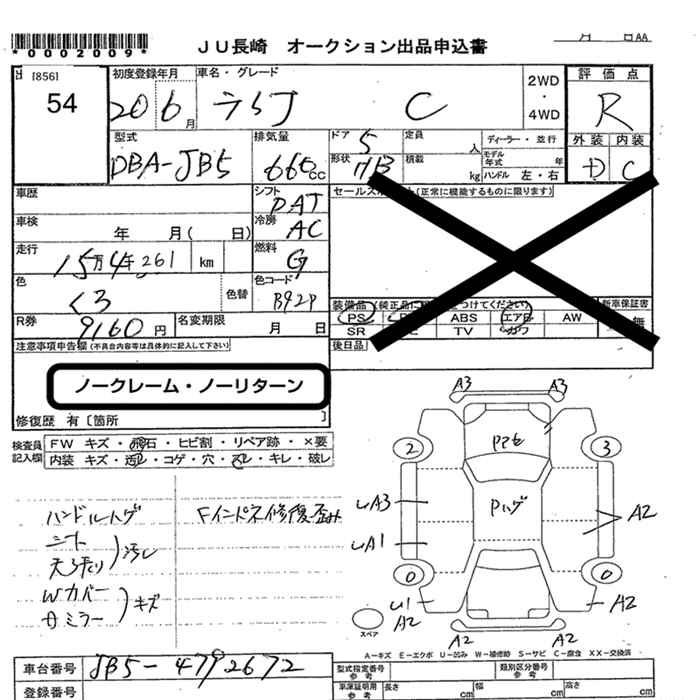 *0002009*
JU長崎 オークション出品申込書
月 日AA
[856]
54
初度登録年月
20 6月
車名・グレード
ライフ C
2WD
・
4WD
評価点
R
型式
DBA-JB5
排気量
660cc
ドア 5
形状 HB
定員 人
積載 kg
ディーラー・並行
モデル年式 年
ハンドル 左・右
外装 内装
D C
車歴
車検 年 月( 日)
走行 15万4千261 km
色 クロ 色替
R券 9160円
名変期限 月 日
シフト PAT
冷房 AC
燃料 G
色コード B92P
セールスポイント(正常に機能するものに限ります)
装備品(純正品に をつけてください)
新車保証書
PS ABS エアB AW
SR TV カワ
無
後日品
注意事項申告欄(不具合内容等は具体的に記入して下さい)
ノークレーム・ノーリターン
修復歴 有〔箇所 〕
検査員記入欄
FW キズ・飛石・ヒビ割・リペア跡・×要
内装 キズ・汚レ・コゲ・穴・スレ・キレ・破レ
ハンドルハゲ
シート
天張り
汚レ
Wカバー
Bミラー
キズ
Fインパネ修復歪み
A3 A3
PPモ
2 3
Pハゲ
UA3
A2
UA1
0 0
U1
A2
A2
A2 A2
スペア
A-キズ E-エクボ U-凹み W-補修跡 S-サビ C-腐食 XX-交換済
車台番号 JB5-4792672
登録番号
型式指定番号 参考
類別区分番号 参考
車庫証明用 参考
長さ cm
幅 cm
高さ cm